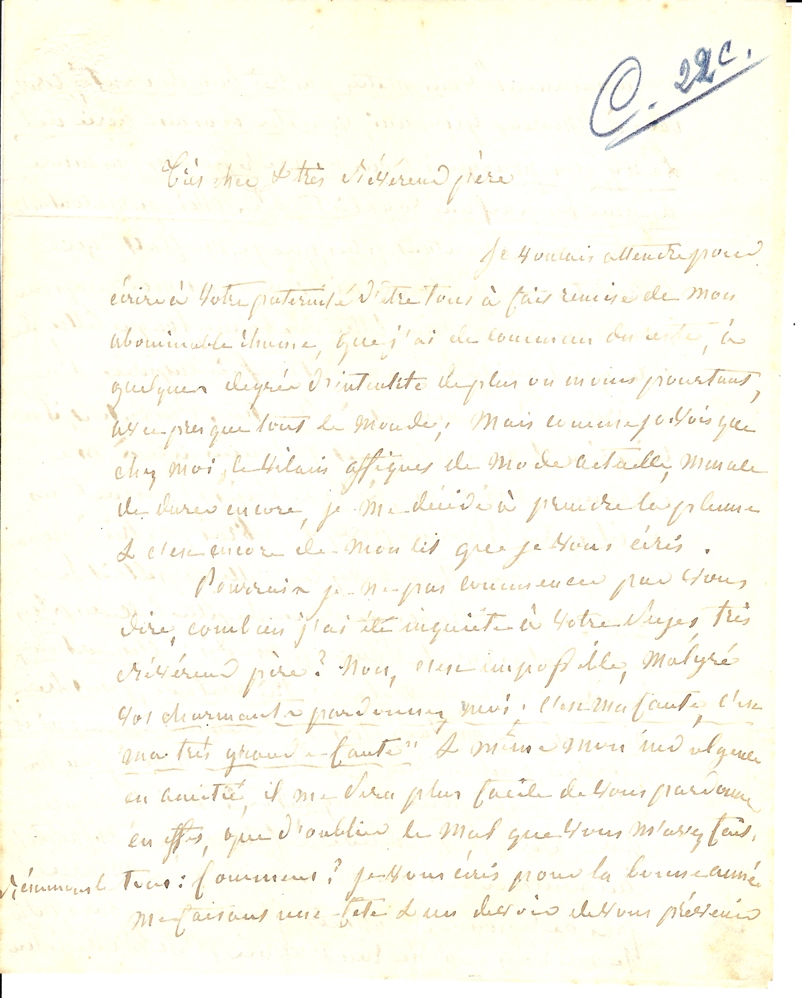 C. 22c.
Très cher & très Révérend père
Je voulais attendre pour
écrire à votre paternité d'être tous à fais remise de mon
abominable que j'ai de commun du reste, à
quelque degrée d'intensité de plus ou moins pourtant,
avec presque tout le monde; Mais comme je vois que
chez moi, le vilain de mode actuelle, menace
de durer encore, je me décide à prendre la plume
& c'est encore de mon lit que je vous écris.
Pourrais je ne pas commencer par vous
dire, combien j'ai été inquiète à votre sujet très
Révérend père? Non, c'est impossible, Malgré
vos charmants pardonnez moi, c'est ma faute, c'est
ma très grande faute" & même mon indulgence
en amitié, il me sera plus facile de vous pardonner
en effet, que d'oublier le mal que vous m'avez fait.
Résumons le tous: Comment? je vous écris pour la bonne année
me faisant une fête & un devoir de vous prévenir